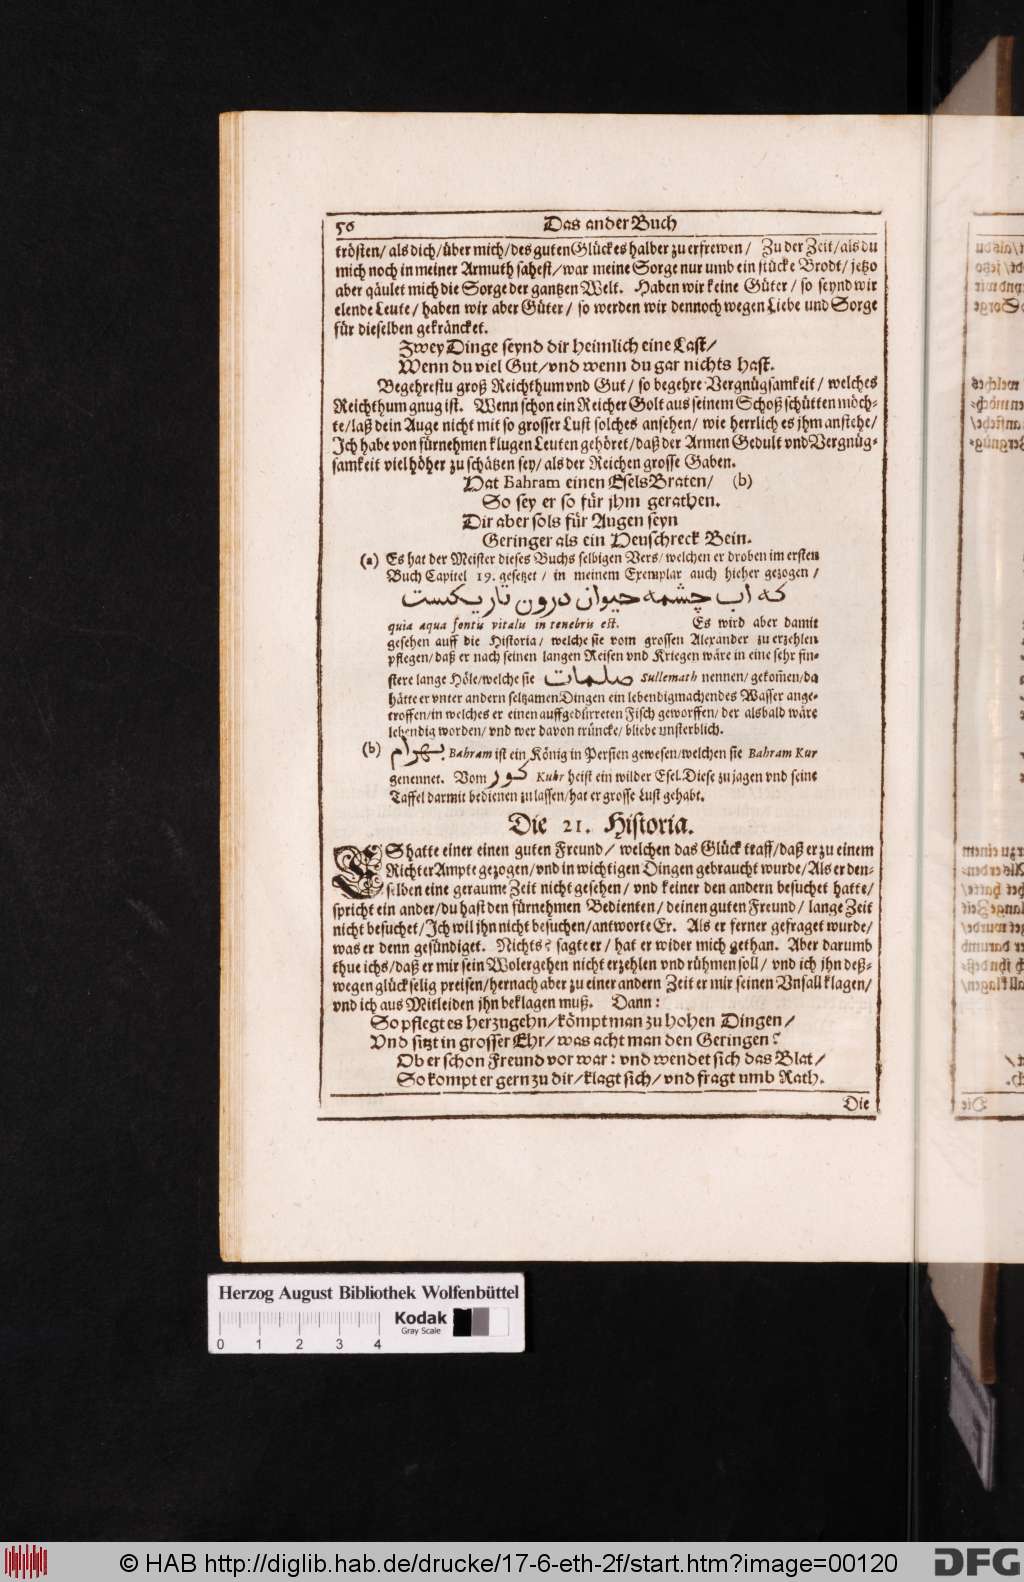 56 Das ander Buch
trösten/ als dich/ über mich/ des guten Glückes halber zu erfrewen/ Zu der Zeit/ als du
mich noch in meiner Armuth sahest/ war meine Sorge nur umb ein stücke Brodt/ jetzo
aber qäulet mich die Sorge der gantzen Welt. Haben wir keine Güter/ so seynd wir
elende Leute/ haben wir aber Güter/ so werden wir dennoch wegen Liebe und Sorge
für dieselben gekräncket.
Zwey Dinge seynd dir heimlich eine Last/
Wenn du viel Gut/ vnd wenn du gar nichts hast.
Begehrestu groß Reichthum vnd Gut/ so begehre Vergnügsamkeit/ welches
Reichthum gnug ist. Wenn schon ein Reicher Golt aus seinem Schoß schütten möch-
te/ laß dein Auge nicht mit so grosser Lust solches ansehen/ wie herrlich es jhm anstehe/
Ich habe von fürnehmen klugen Leuten gehöret/ daß der Armen Gedult vnd Vergnüg-
samkeit viel höher zu schätzen sey/ als der Reichen grosse Gaben.
Hat Bahram einen Esels Braten/ (b)
So sey er so für jhm gerathen.
Dir aber sols für Augen seyn
Geringer als ein Heuschreck Bein.
(a) Es hat der Meister dieses Buchs selbigen Vers/ welchen er droben im ersten
Buch Capitel 19. gesetzet/ in meinem Exemplar auch hieher gezogen/
که اب چشمه حیوان درون تاریکیست
quia aqua fontis vitalis in tenebris est. Es wird aber damit
gesehen auff die Historia/ welche sie vom grossen Alexander zu erzehlen
pflegen/ daß er nach seinen langen Reisen vnd Kriegen wäre in eine sehr fin-
stere lange Höle/ welche sie صلمات Sullemath nennen/ gekom̃en/ da
hätte er vnter andern seltzamen Dingen ein lebendigmachendes Wasser ange-
troffen/ in welches er einen auffgedürreten Fisch geworffen/ der alsbald wäre
lebendig worden/ vnd wer davon trüncke/ bliebe unsterblich.
(b) بهرام Bahram ist ein König in Persien gewesen/ welchen sie Bahram Kur
genennet. Vom کور Kuhr heist ein wilder Esel. Diese zu jagen vnd seine
Taffel darmit bedienen zu lassen/ hat er grosse Lust gehabt.
Die 21. Historia.
ES hatte einer einen guten Freund/ welchen das Glück traff/ daß er zu einem
Richter Ampte gezogen/ vnd in wichtigen Dingen gebraucht wurde/ Als er den-
selben eine geraume Zeit nicht gesehen/ vnd keiner den andern besuchet hatte/
spricht ein ander/ du hast den fürnehmen Bedienten/ deinen guten Freund/ lange Zeit
nicht besuchet/ Ich wil jhn nicht besuchen/ antworte Er. Als er ferner gefraget wurde/
was er denn gesündiget. Nichts? sagte er/ hat er wider mich gethan. Aber darumb
thue ichs/ daß er mir sein Wolergehen nicht erzehlen vnd rühmen soll/ vnd ich jhn deß-
wegen glückselig preisen/ hernach aber zu einer andern Zeit er mir seinen Vnfall klagen/
vnd ich aus Mitleiden jhn beklagen muß. Dann:
So pflegt es herzugehn/ kömpt man zu hohen Dingen/
Vnd sitzt in grosser Ehr/ was acht man den Geringen?
Ob er schon Freund vor war: vnd wendet sich das Blat/
So kompt er gern zu dir/ klagt sich/ vnd fragt umb Rath.
Die
Herzog August Bibliothek Wolfenbüttel
Kodak
Gray Scale
0 1 2 3 4
© HAB http://diglib.hab.de/drucke/17-6-eth-2f/start.htm?image=00120
DFG